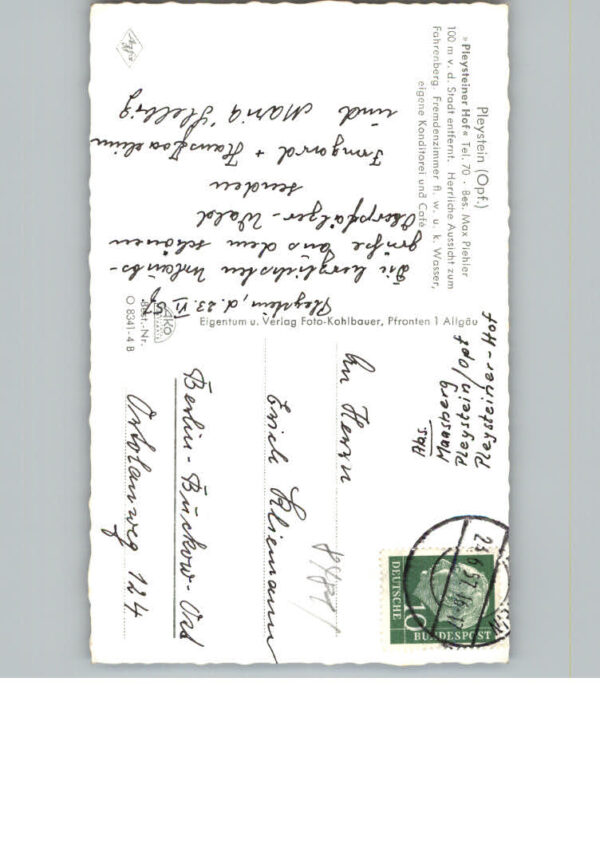 Pleystein (Opf.)
»Pleysteiner Hof« Tel. 70 · Bes. Max Piehler
100 m v. d. Stadt entfernt. Herrliche Aussicht zum
Fahrenberg. Fremdenzimmer fl. w. u. k. Wasser,
eigene Konditorei und Café
Pleystein, d. 23. VI. 57
Die herzlichsten Urlaubs-
grüße aus dem schönen
Oberpfälzer-Wald
senden
Irmgard + Hans Joachim
und Maria Helbig
Agfa
Eigentum u. Verlag Foto-Kohlbauer, Pfronten 1 Allgäu
AKO
Best.-Nr.
O 8341-4 B
Abs.
Maasberg
Pleystein/Opf
Pleysteiner-Hof
23.6.57.16-17
DEUTSCHE
BUNDESPOST
10
An Herrn
Erich Kliemann
Berlin-Buckow-Ost
Ortolanweg 124